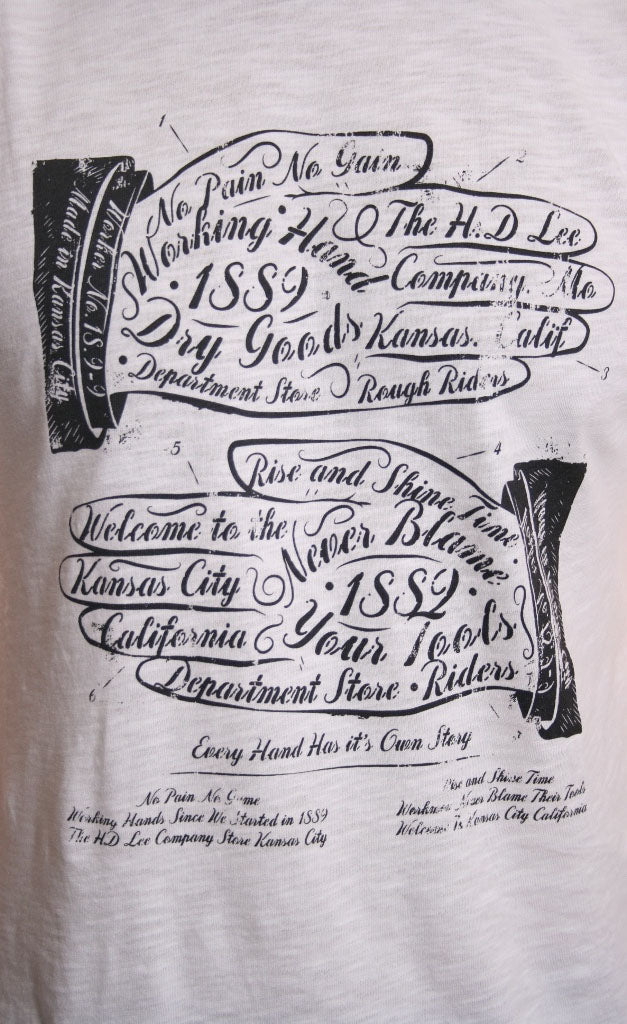 1
2
No Pain No Gain
Working Hand
The H.D Lee
1889
Company. Mo
Dry Goods
Kansas. Calif
Department Store
Rough Riders
3
Made in Kansas City
Worker No. 189-9
5
4
Rise and Shine Time
Welcome to the
Never Blame
Kansas City
1889
California
Your Tools
Department Store • Riders
6
Every Hand Has it's Own Story
No Pain No Game
Working Hands Since We Started in 1889
The H.D Lee Company Store Kansas City
Rise and Shine Time
Workmen Never Blame Their Tools
Welcome Kansas City California